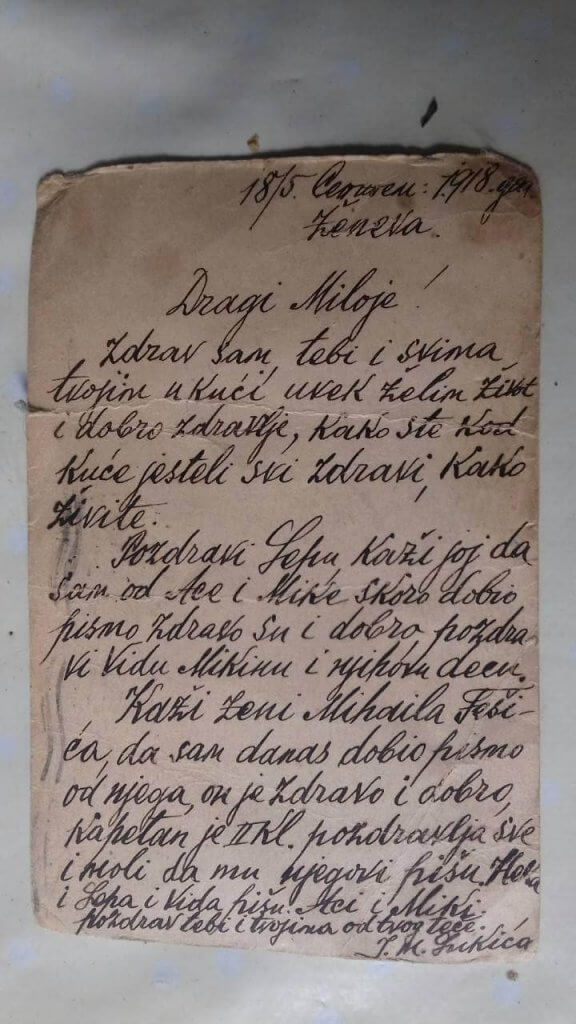 18/5. 1918. god
Ženeva.
Dragi Miloje!
Zdrav sam, tebi i svima
tvojim u kući uvek želim život
i dobro zdravlje, kako ste kod
kuće jesteli svi zdravi, kako
živite.
Pozdravi Lepu, kaži joj da
sam od Ace i Mike skoro dobio
pismo zdravo su i dobro, pozdra-
vi Vidu Mikinu i njihovu decu.
Kaži ženi Mihaila Teši-
ća, da sam danas dobio pismo
od njega, on je zdravo i dobro,
kapetan je II kl. pozdravlja sve
i moli da mu njegovi pišu. Neka
i Lepa i Vida pišu. Aci i Miki.
pozdrav tebi i tvojima od tvog teče.